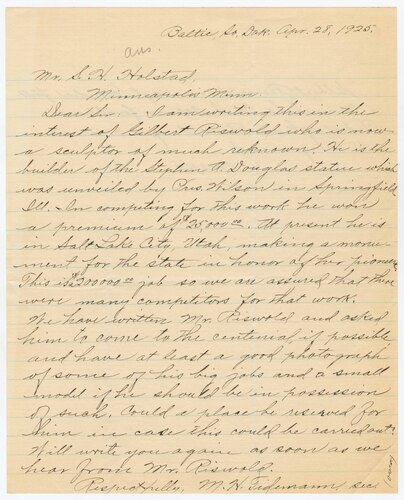 Baltic, So. Dak. Apr. 28, 1925.
ans.
Mr. S. H. Holstad,
Minneapolis Minn.
Dear Sir:- I am writing this in the
interest of Gilbert Riswold who is now
a sculptor of much reknown. He is the
builder of the Stephen A. Douglas statue which
was unveiled by Pres. Wilson in Springfield
Ill. In competing for this work he won
a premium of $25,000.00. At present he is
in Salt Lake City, Utah, making a monu-
ment for the state in honor of her pioneers.
This is $200000.00 job so we are assured that there
were many competitors for that work.
We have written Mr. Riswold and asked
him to come to the centenial, if possible,
and have at least a good photograph
of some of his big jobs and a small
model if he should be in possession
of such. Could a place be reserved for
him in case this could be carried out?
Will write you again as soon as we
hear from Mr. Riswold.
Respectfully, M. H. Tidemann, sec
(over)